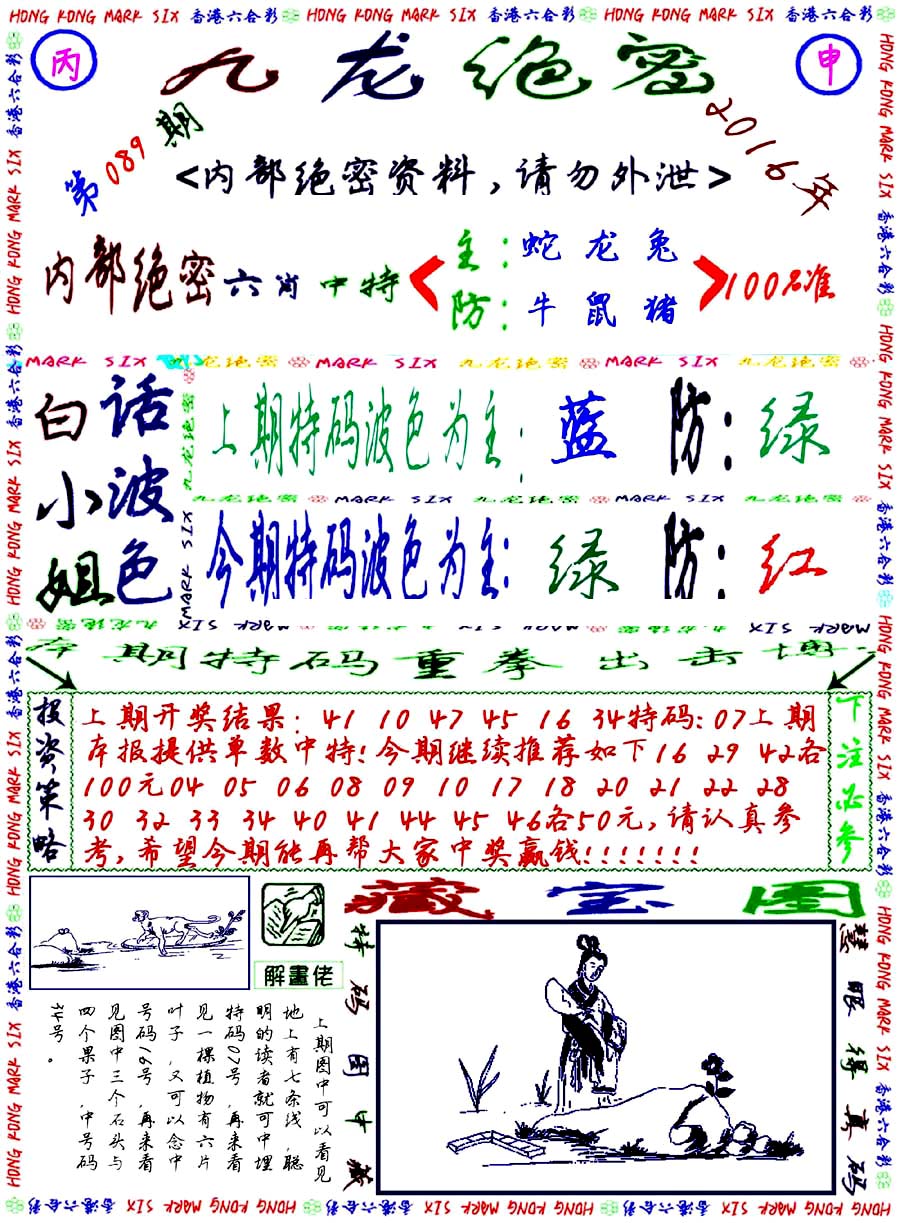 HONG KONG MARK SIX 香港六合彩 HONG KONG MARK SIX 香港六合彩 HONG KONG MARK SIX 香港六合彩
丙 九龙绝密 申
第089期 2016年
<内部绝密资料,请勿外泄>
内部绝密六肖中特
主:蛇 龙 兔
防:牛 鼠 猪
100%准
MARK SIX 九龙绝密 MARK SIX 九龙绝密 MARK SIX 九龙绝密
白小姐
话波色
上期特码波色为主:蓝 防:绿
九龙绝密 MARK SIX 九龙绝密 MARK SIX 九龙绝密
今期特码波色为主:绿 防:红
本期特码重拳出击博
投资策略
上期开奖结果: 41 10 47 45 16 34特码:07上期
本报提供单数中特!今期继续推荐如下16 29 42各
100元04 05 06 08 09 10 17 18 20 21 22 28
30 32 33 34 40 41 44 45 46各50元,请认真参
考,希望今期能再帮大家中奖赢钱!!!!!!!
下注必参
藏宝图
解畫佬
上期图中可以看见
地上有七条线,聪
明的读者就可中埋
特码07号,再来看
见一棵植物有六片
叶子,又可以念中
号码16号,再来看
见图中三个石头与
四个果子,中号码
34号。
特码图中藏
慧眼得真码